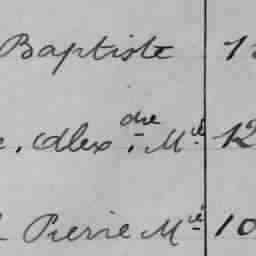 Baptiste 1
e. Alex.dre Mie 12
Pierre Mie 10